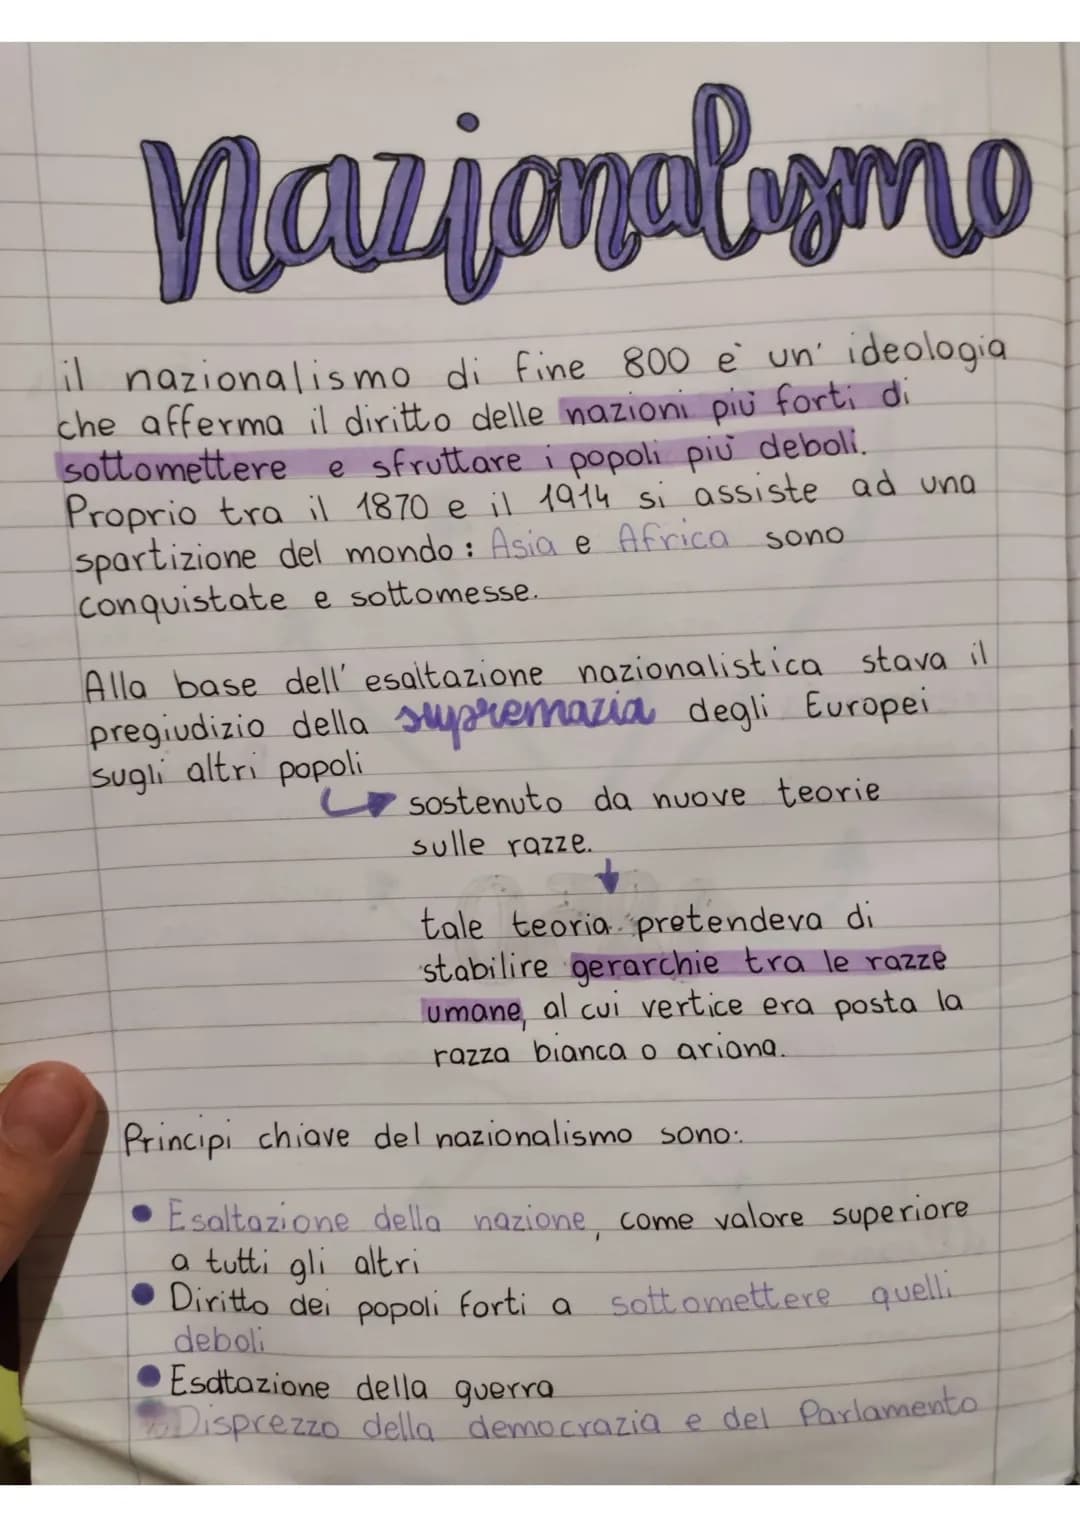 Nazionalismo
il nazionalismo di fine 800 è un' ideologia
che afferma il diritto delle nazioni più forti di
sottomettere e sfruttare i popoli più deboli.
Proprio tra il 1870 e il 1914 si assiste ad una
spartizione del mondo: Asia e Africa sono
conquistate e sottomesse.
Alla base dell' esaltazione nazionalistica stava il
pregiudizio della supremazia degli Europei
sugli altri popoli
sostenuto da nuove teorie
sulle razze.
tale teoria pretendeva di
stabilire gerarchie tra le razze
umane, al cui vertice era posta la
razza bianca o ariana.
Principi chiave del nazionalismo sono:
• Esaltazione della nazione, come valore superiore
a tutti gli altri
• Diritto dei popoli forti a sottomettere quelli
deboli
• Esaltazione della guerra
• Disprezzo della democrazia e del Parlamento